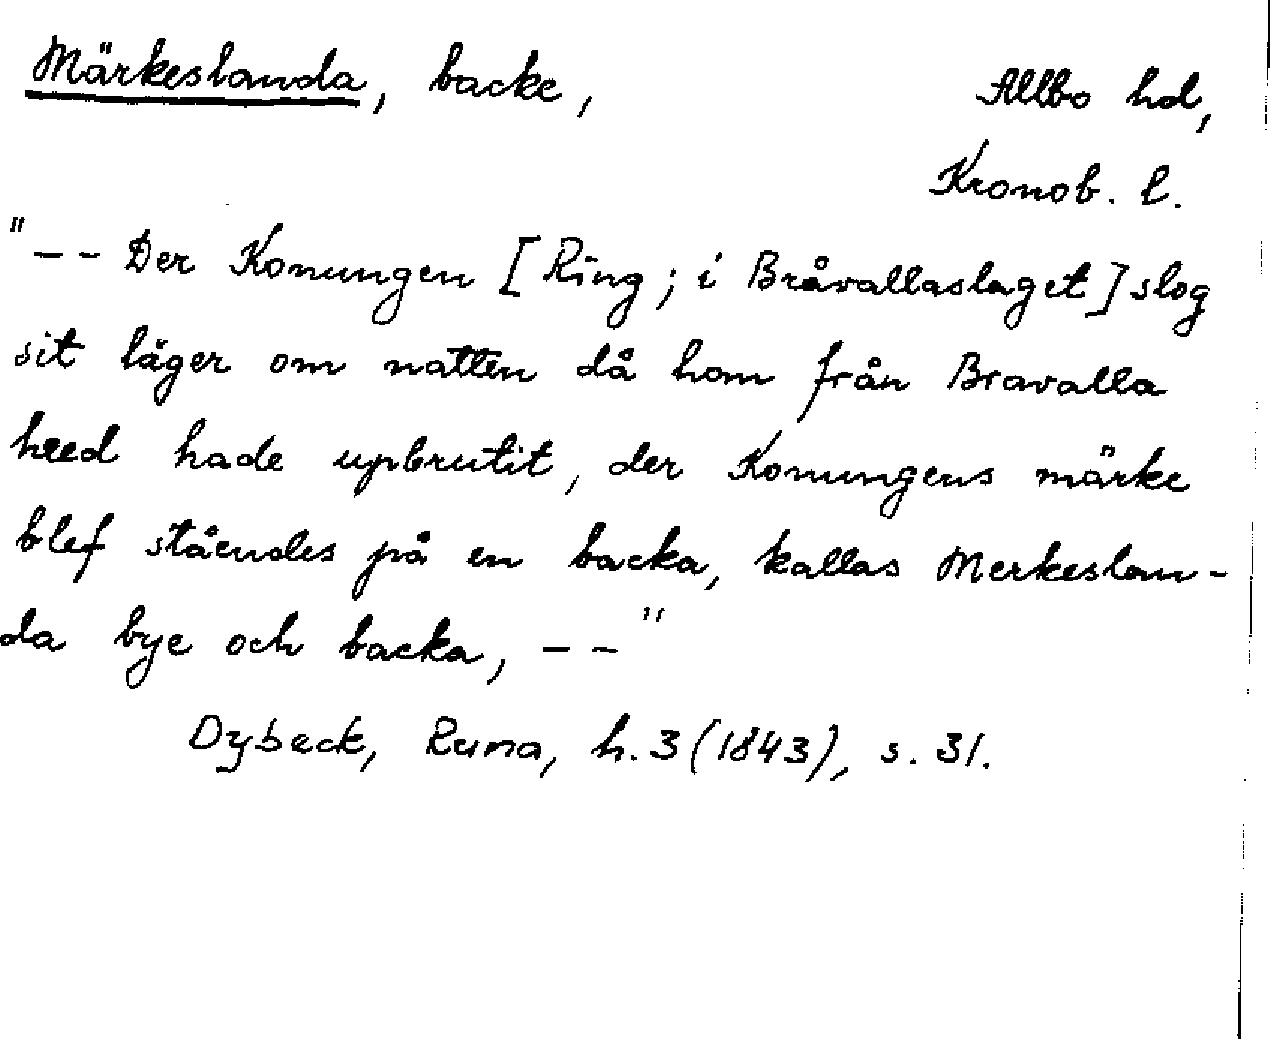 Märkeslanda, backe,
Allbo hd,
Kronob. l.
"-- Der Konungen [Ring; i Bråvallaslaget] slog
sit läger om natten då hom från Bravalla
hed hade upbrutit, der Konungens märke
blef ståendes på en backa, kallas Merkeslan-
da bye och backa, --"
Dybeck, Runa, h. 3 (1843), s. 31.